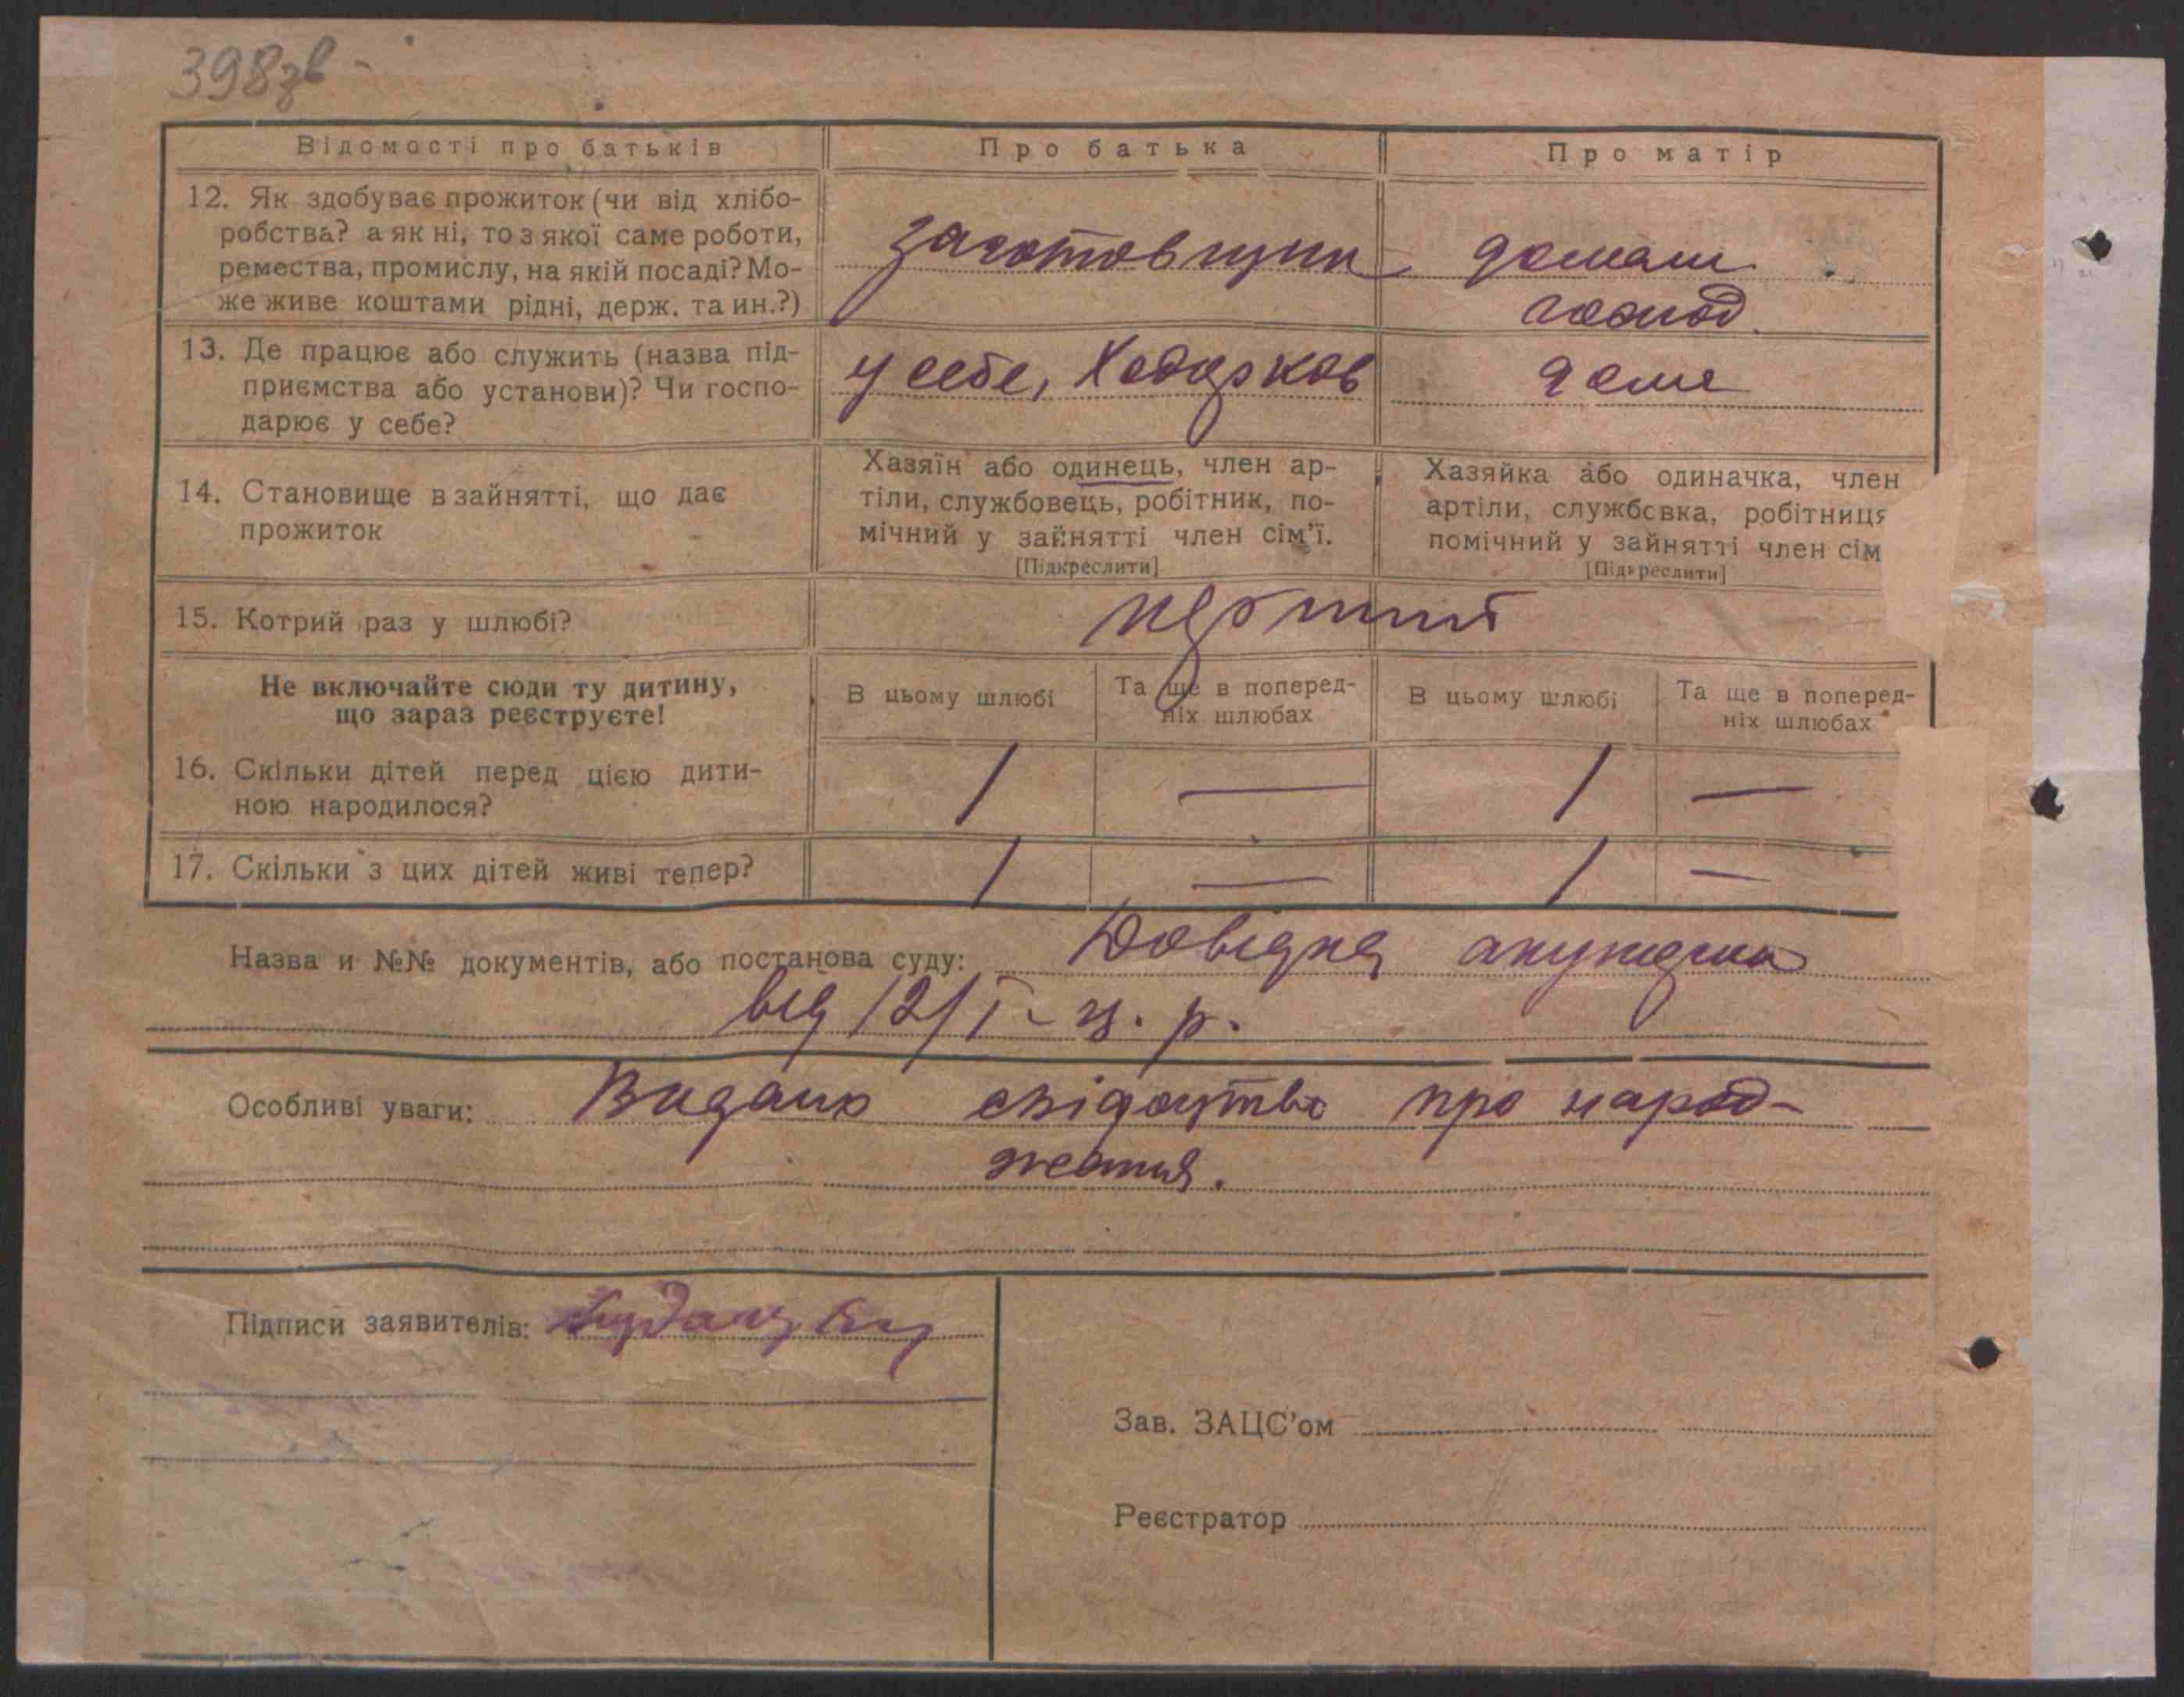 398зв
Відомості про батьків
Про батька
Про матір
12. Як здобуває прожиток (чи від хлібо-
робства? а як ні, то з якої саме роботи,
ремества, промислу, на якій посаді? Мо-
же живе коштами рідні, держ. та ин.?)
заготовщик
домаш
господ.
13. Де працює або служить (назва під-
приємства або установи)? Чи госпо-
дарює у себе?
у себе, Ходорков
дома
14. Становище в зайнятті, що дає
прожиток
Хазяїн або одинець, член ар-
тіли, службовець, робітник, по-
мічний у зайнятті член сім'ї.
[Підкреслити]
Хазяйка або одиначка, член
артіли, службовка, робітниця
помічний у зайнятті член сім
[Підкреслити]
15. Котрий раз у шлюбі?
перший
Не включайте сюди ту дитину,
що зараз реєструєте!
В цьому шлюбі
Та ще в поперед-
ніх шлюбах
В цьому шлюбі
Та ще в поперед-
ніх шлюбах
16. Скільки дітей перед цією дити-
ною народилося?
1 — 1 —
17. Скільки з цих дітей живі тепер?
1 — 1 —
Назва и №№ документів, або постанова суду: Довідка акушерки
від 12/I - ц. р.
Особливі уваги: Видано свідоцтво про народ-
ження.
Підписи заявителів:
Зав. ЗАЦС'ом
Реєстратор